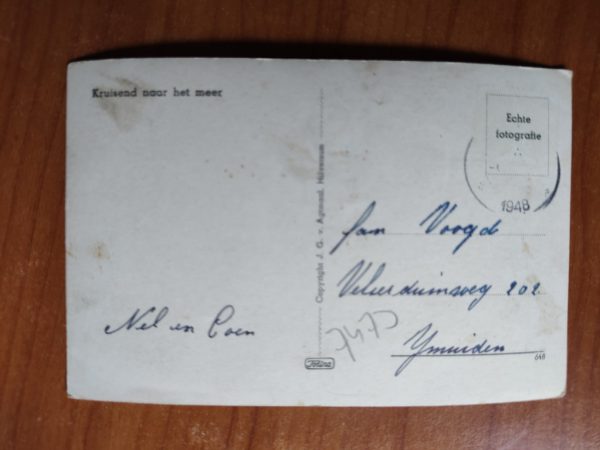 Kruisend naar het meer
Echte
fotografie
1948
Copyright J. G. v. Agtmaal, Hilversum
fam Voogd
Velserduinweg 202
Ymuiden
Nel en Coen
648